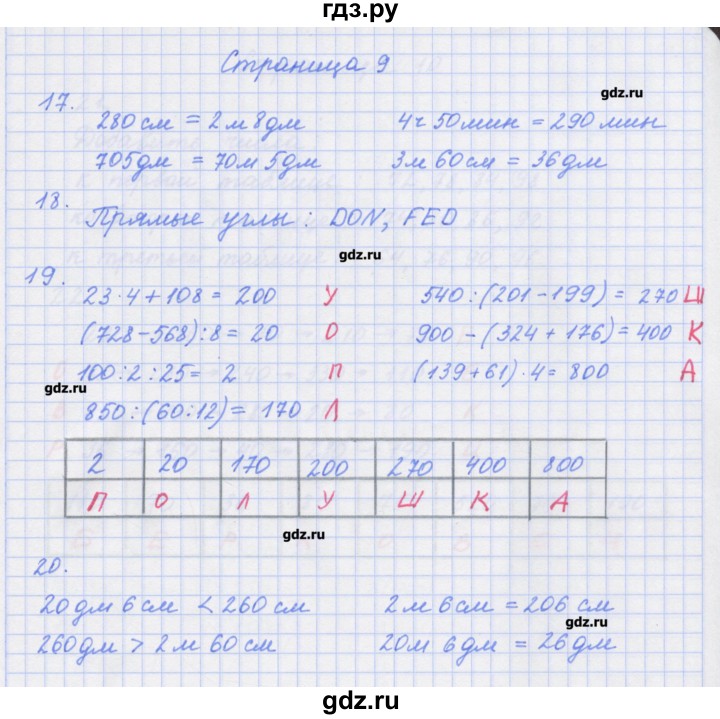 гдз.ру
Страница 9
gdz.ru
17.
280 см = 2 м 8 дм 4 ч 50 мин = 290 мин
705 дм = 70 м 5 дм 3 м 60 см = 36 дм
18.
Прямые углы : DON, FED
gdz.ru
19.
23 · 4 + 108 = 200 У 540 : (201 - 199) = 270 Ш
(728 - 568) : 8 = 20 О 900 - (324 + 176) = 400 К
100 : 2 : 25 = 2 П (139 + 61) · 4 = 800 А
gdz.ru
850 : (60 : 12) = 170 Л
2 20 170 200 270 400 800
П О Л У Ш К А
gdz.ru
20.
20 дм 6 см < 260 см 2 м 6 см = 206 см
gdz.ru
260 дм > 2 м 60 см 20 м 6 дм = 26 дм
gdz.ru